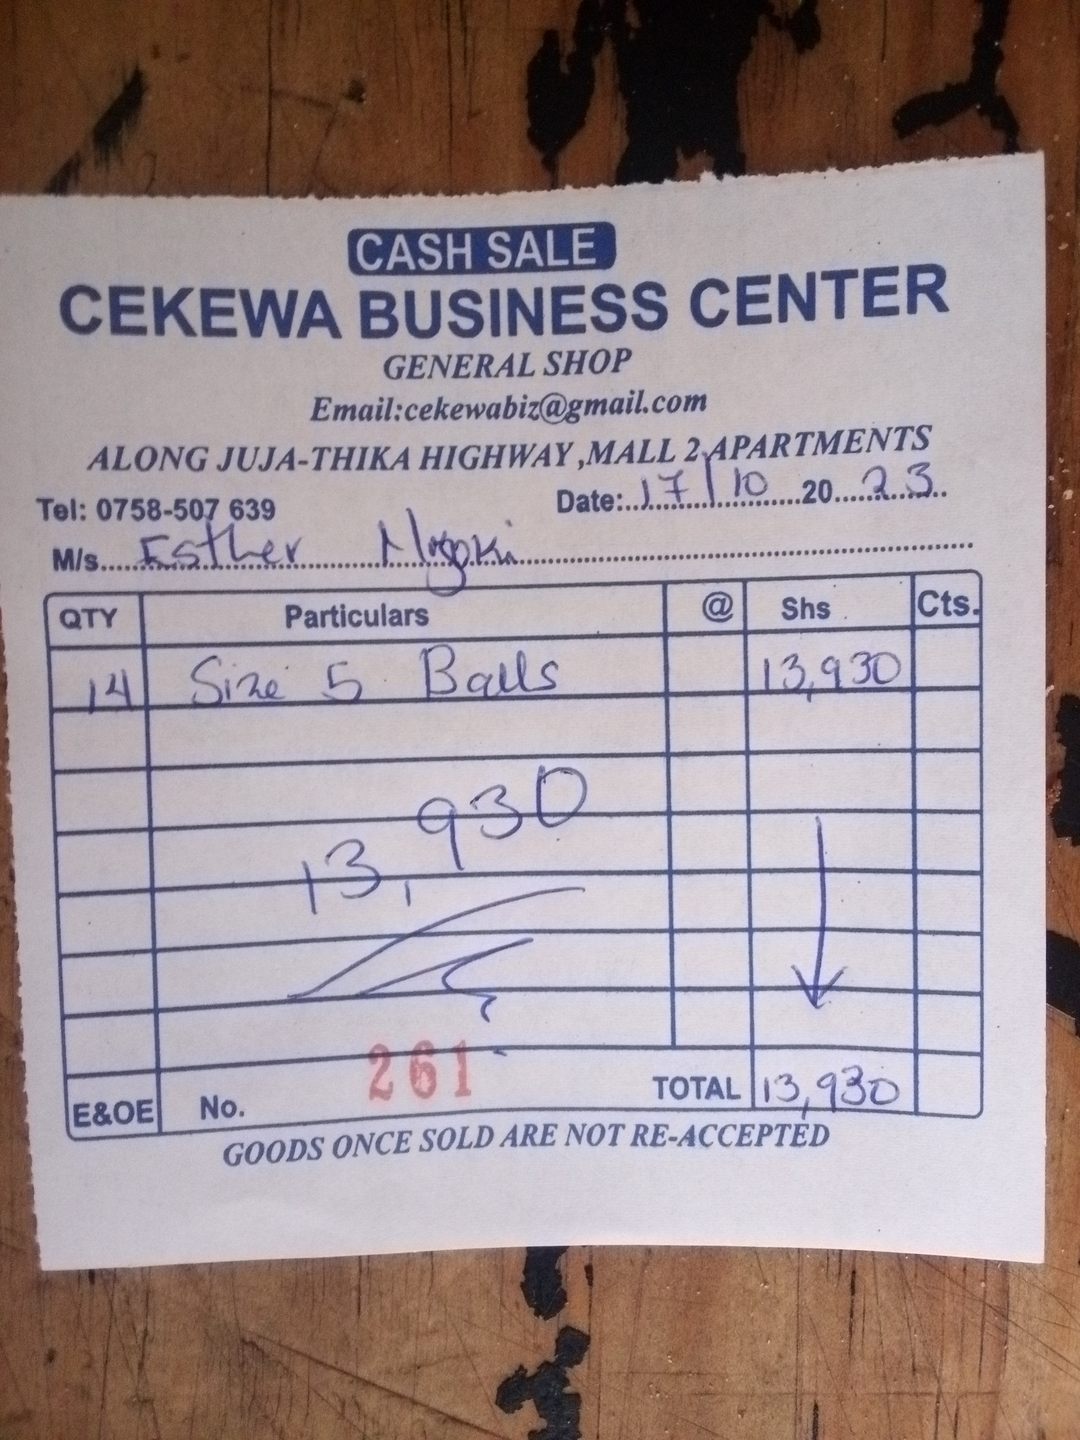 CASH SALE
CEKEWA BUSINESS CENTER
GENERAL SHOP
Email:cekewabiz@gmail.com
ALONG JUJA-THIKA HIGHWAY ,MALL 2 APARTMENTS
Tel: 0758-507 639 Date:..17/10......20...23..
M/s....Esther
QTY Particulars @ Shs Cts.
14 Size 5 Balls 13,930
13,930
E&OE No. 261 TOTAL 13,930
GOODS ONCE SOLD ARE NOT RE-ACCEPTED